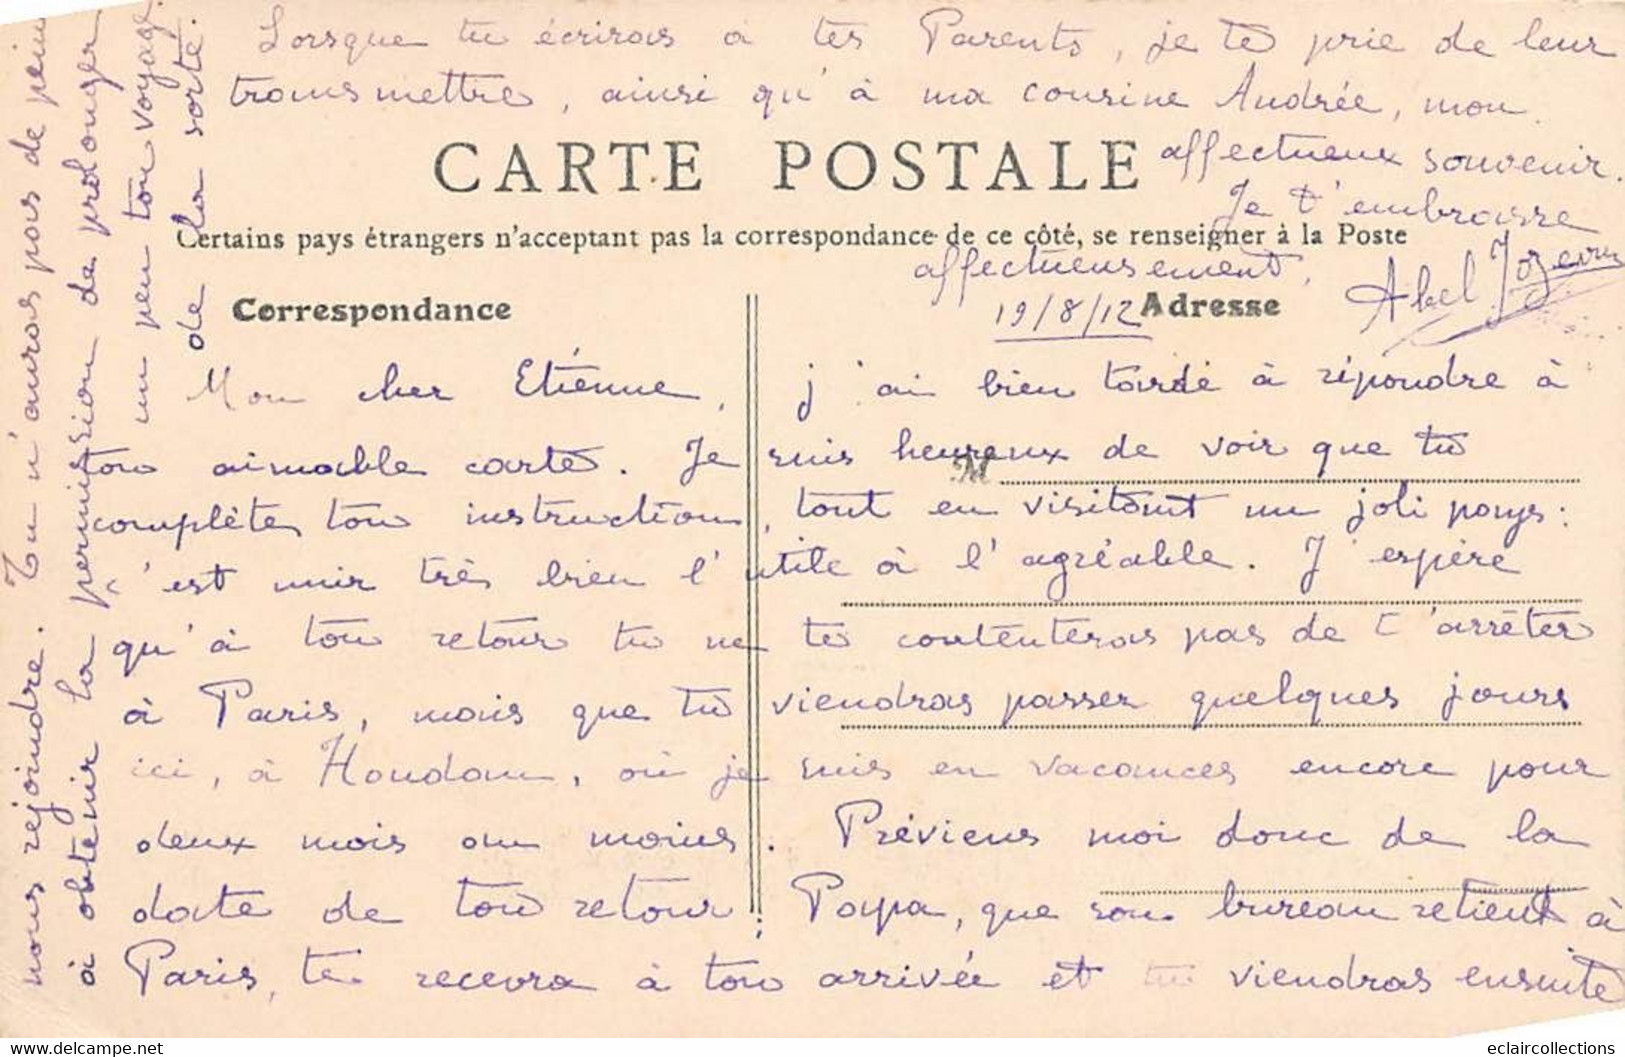 CARTE POSTALE
Certains pays étrangers n'acceptent pas la correspondance de ce côté, se renseigner à la Poste
Correspondance
Adresse
19/8/12
Mon cher Etienne, j'ai bien tardé à répondre à
ton aimable carte. Je suis heureux de voir que tu
complètes ton instruction, tout en visitant un joli pays :
c'est unir très bien l'utile à l'agréable. J'espère
qu'à ton retour tu ne te contenteras pas de t'arrêter
à Paris, mais que tu viendras passer quelques jours
ici, à Houdan, où je suis en vacances encore pour
deux mois au moins. Préviens moi donc de la
date de ton retour ; Papa, que son bureau retient à
Paris, te recevra à ton arrivée et tu viendras ensuite
nous rejoindre. Tu n'auras pas de peine
à obtenir la permission de prolonger
un peu ton voyage
de la sorte.
Lorsque tu écriras à tes Parents, je te prie de leur
transmettre, ainsi qu'à ma cousine Andrée, mon
affectueux souvenir.
Je t'embrasse
affectueusement,
Abel
M
eclaircollections